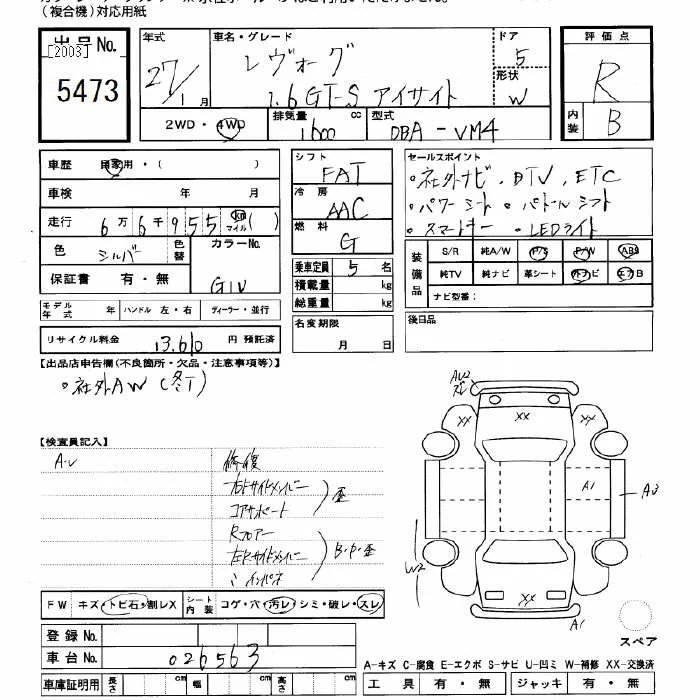 (複合機)対応用紙
出品No.
[2003]
5473
年式
27/1月
車名・グレード
レヴォーグ
1.6GT-S アイサイト
ドア
5
形状
W
評価点
R
内装
B
2WD・4WD
排気量
1600 cc
型式
DBA-VM4
車歴 自家用・( )
車検 年 月
走行 6万6千955 km マイル ( )
色 シルバー 色替
カラーNo.
G1U
保証書 有・無
シフト
FAT
冷房
AAC
燃料
G
乗車定員 5 名
積載量 kg
総重量 kg
セールスポイント
・社外ナビ、DTV、ETC
・パワーシート ・パドルシフト
・スマートキー ・LEDライト
装備品
S/R 純A/W P/S P/W ABS
純TV 純ナビ 革シート 外ナビ エアB
ナビ型番:
モデル年式 年 ハンドル 左・右 ディーラー・並行
名変期限
月 日
後日品
リサイクル料金 13,610 円 預託済
【出品店申告欄(不良箇所・欠品・注意事項等)】
・社外AW(冬T)
【検査員記入】
A・U
修復
右Fサイドメンバー
コアサポート
歪
Rフロアー
左Rサイドメンバー
〃インパネ
B・P・歪
A1
A3
W2
XX
XX
XX
XX
XX
A1
FW キズ・トビ石・割レX
シート内装 コゲ・穴・汚レ・シミ・破レ・スレ
登録No.
車台No. 026563
車庫証明用 長さ cm 幅 cm 高さ cm
スペア
A-キズ C-腐食 E-エクボ S-サビ U-凹ミ W-補修 XX-交換済
工具 有・無 ジャッキ 有・無